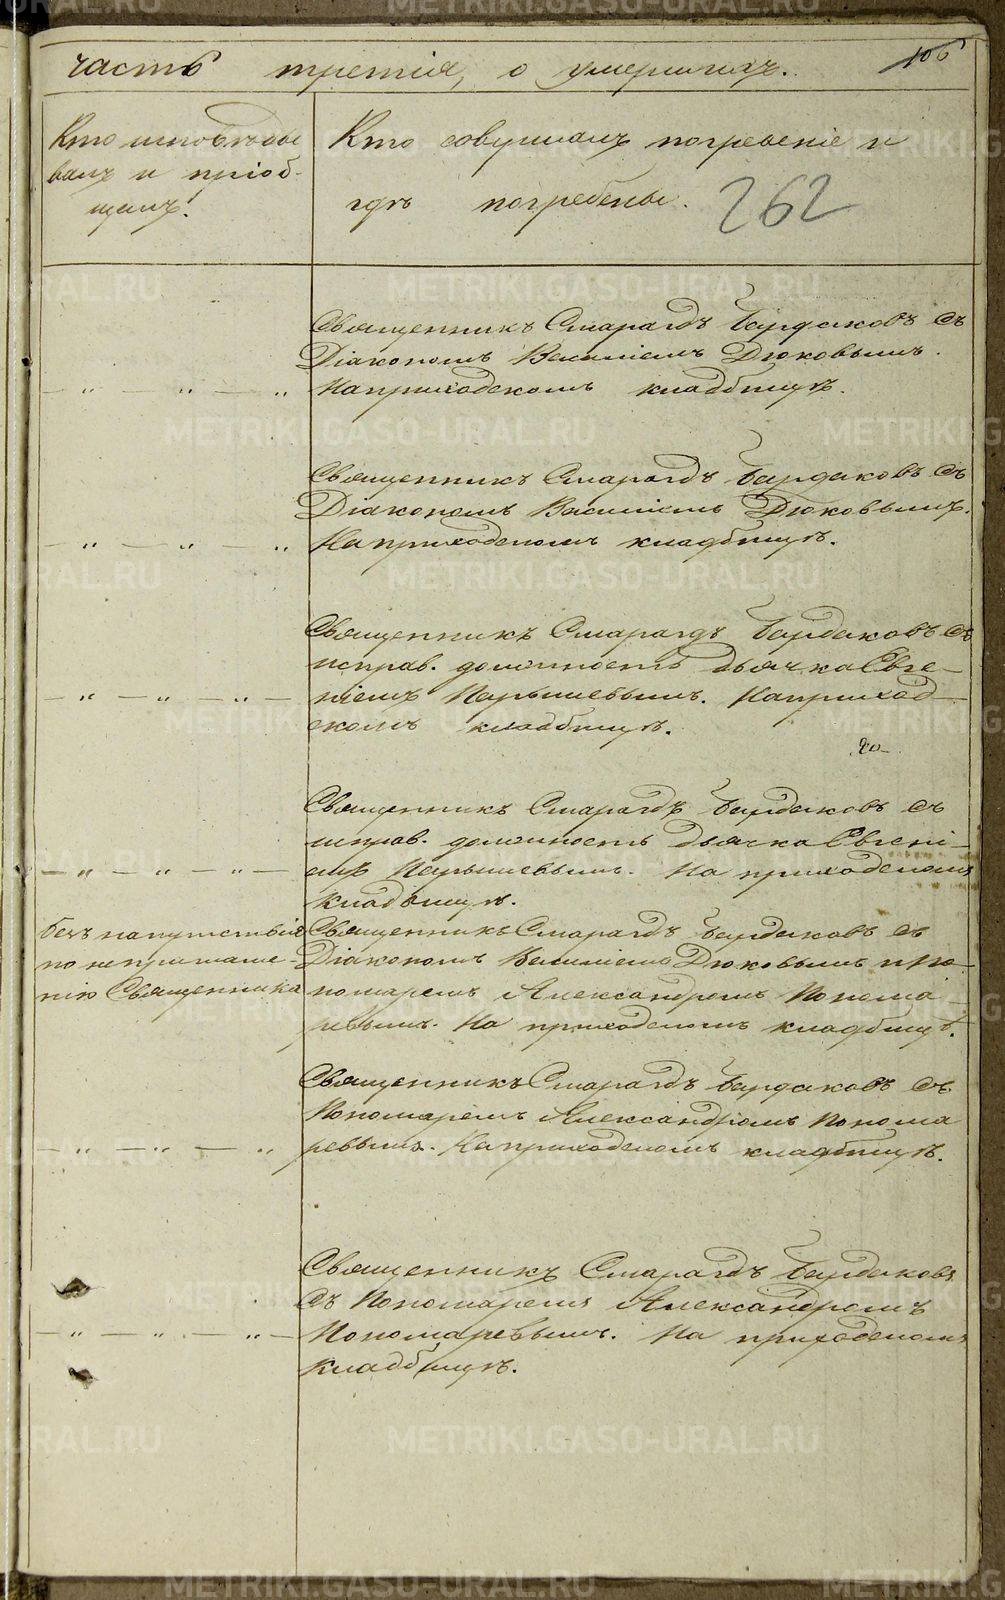 часть третія, о умершихъ.
106
Кто исповѣды
валъ и пріоб-
щалъ.
Кто совершалъ погребеніе и
гдѣ погребены.
262
Священникъ Смарагдъ Бардаковъ съ
Діакономъ Василіемъ Дюковымъ.
— " — " — "
На приходскомъ кладбищѣ.
Священникъ Смарагдъ Бардаковъ съ
Діакономъ Василіемъ Дюковымъ.
— " — " — "
На приходскомъ кладбищѣ.
Священникъ Смарагдъ Бардаковъ съ
исправ. должность дьячка Евге-
— " — " — " —
ніемъ Парышевымъ. На приход
скомъ кладбищѣ.
Священникъ Смарагдъ Бардаковъ съ
исправ. должность дьячка Евгені-
— " — " — " —
емъ Парышевымъ. На приходскомъ
кладбищѣ.
безъ напутствія
по неприглаше-
нію Священника
Священникъ Смарагдъ Бардаковъ съ
Діакономъ Василіемъ Дюковымъ и По-
номаремъ Александромъ Понома-
ревымъ. На приходскомъ кладбищѣ.
Священникъ Смарагдъ Бардаковъ съ
Пономаремъ Александромъ Понома
— " — " — "
ревымъ. На приходскомъ кладбищѣ.
Священникъ Смарагдъ Бардаковъ
съ Пономаремъ Александромъ
— " — " — " —
Пономаревымъ. На приходскомъ
кладбищѣ.
METRIKI.GASO-URAL.RU